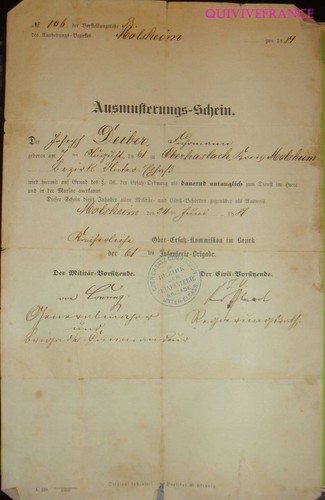 QUIVIVEFRANCE
№ 106 der Vorstellungsliste
des Aushebungs-Bezirkes Molsheim pro 1881
Ausmusterungs-Schein.
Der Joseph Deiber,
geboren am 7 August 18 zu Oberhaslach, Kreis Molsheim
Bezirk Unter Elsaß
wird hiermit auf Grund des §. 36 der Ersatz-Ordnung als dauernd untauglich zum Dienst im Heere
und in der Marine ausgemustert.
Dieser Schein dient Inhaber allen Militär- und Civil-Behörden gegenüber als Ausweis.
Molsheim den 24 Juni 1881
Kaiserliche Ober-Ersatz-Kommission im Bezirk
der 61 ten Infanterie-Brigade.
Der Militär-Vorsitzende. Der Civil-Vorsitzende.
von
Generalmajor Regierungsrath
und
Brigade Commandeur